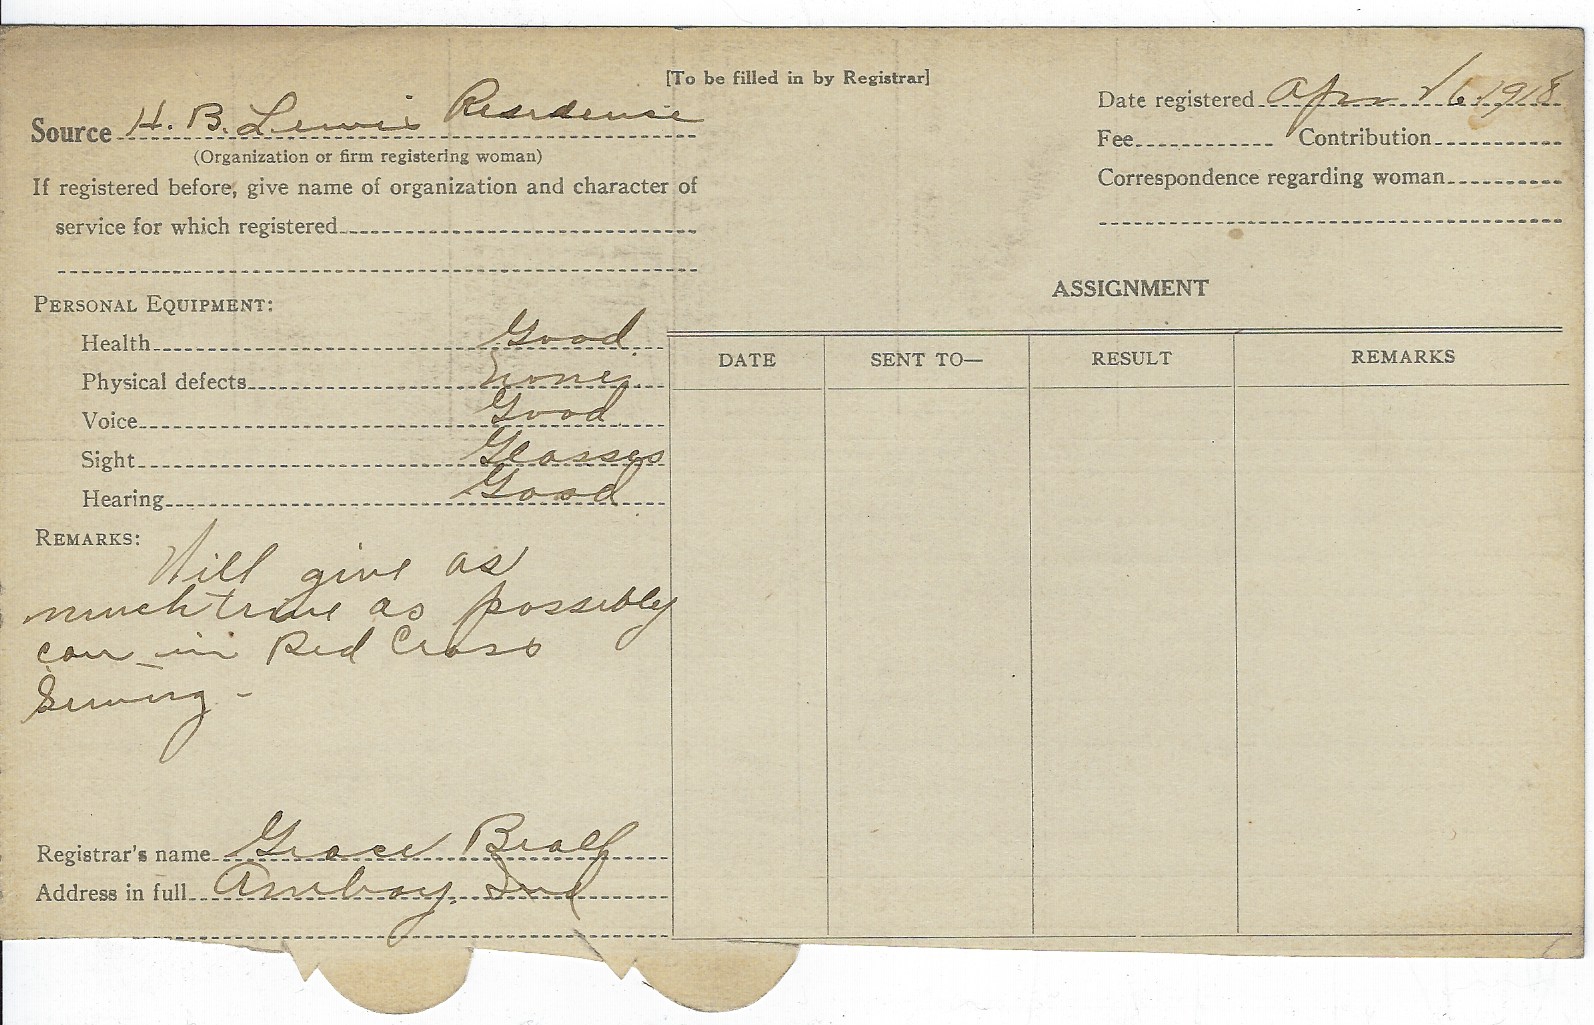 [To be filled in by Registrar]
Source H. B. Lewis Residence
(Organization or firm registering woman)
If registered before, give name of organization and character of
service for which registered
PERSONAL EQUIPMENT:
Health Good
Physical defects None
Voice Good
Sight Glasses
Hearing Good
REMARKS:
Will give as
much time as possibly
can in Red Cross
Sewing -
Registrar's name Grace Beall
Address in full Amboy, Ind
Date registered Apr 26 1918
Fee Contribution
Correspondence regarding woman
ASSIGNMENT
DATE SENT TO— RESULT REMARKS